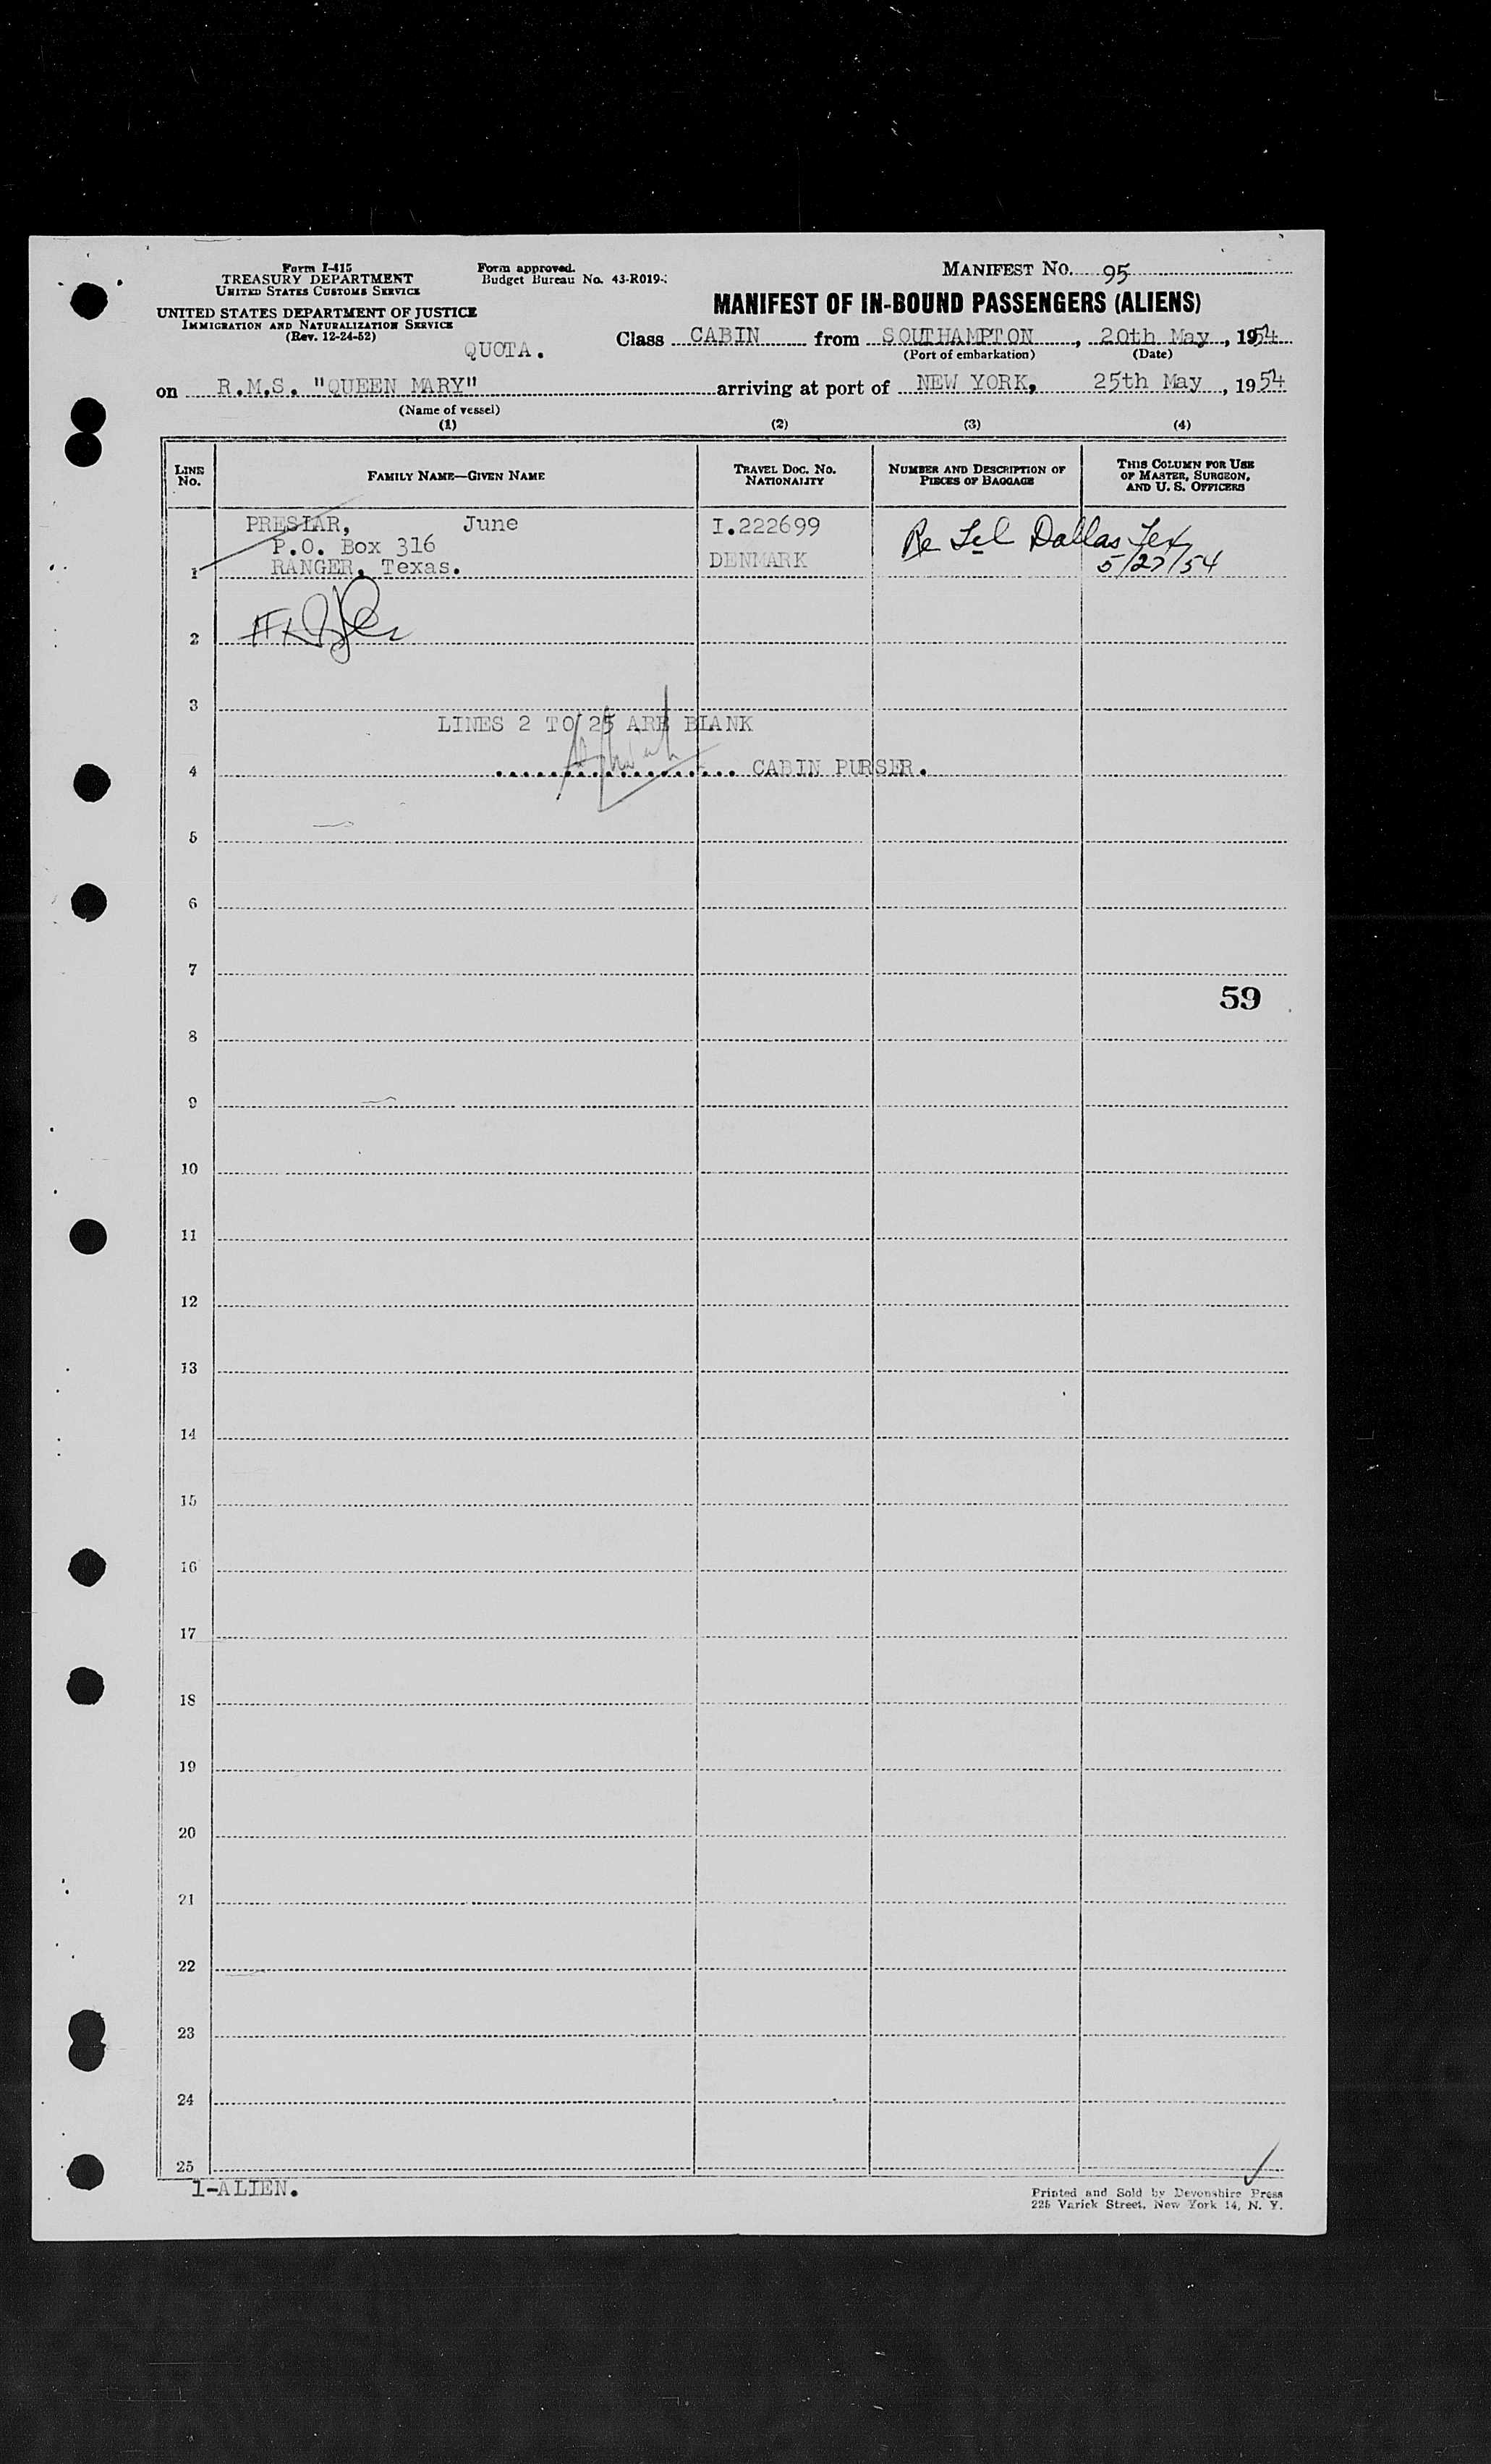 Form I-415
TREASURY DEPARTMENT
UNITED STATES CUSTOMS SERVICE
UNITED STATES DEPARTMENT OF JUSTICE
IMMIGRATION AND NATURALIZATION SERVICE
(Rev. 12-24-52)
Form approved.
Budget Bureau No. 43-R019-
QUOTA.
MANIFEST NO. 95
MANIFEST OF IN-BOUND PASSENGERS (ALIENS)
Class CABIN from SOUTHAMPTON, 20th May, 1954
(Port of embarkation) (Date)
on R.M.S. "QUEEN MARY" arriving at port of NEW YORK, 25th May, 1954
(Name of vessel)
(1) (2) (3) (4)
LINE NO. FAMILY NAME—GIVEN NAME TRAVEL DOC. NO. NATIONALITY NUMBER AND DESCRIPTION OF PIECES OF BAGGAGE THIS COLUMN FOR USE OF MASTER, SURGEON, AND U. S. OFFICERS
PRESIAR, June I.222699 Re Tel Dallas Tex
P.O. Box 316 DENMARK 5/27/54
1 RANGER, Texas.
2
3
LINES 2 TO 25 ARE BLANK
4 CABIN PURSER.
5
6
7
59
8
9
10
11
12
13
14
15
16
17
18
19
20
21
22
23
24
25
1-ALIEN.
Printed and Sold by Devonshire Press
225 Varick Street, New York 14, N. Y.